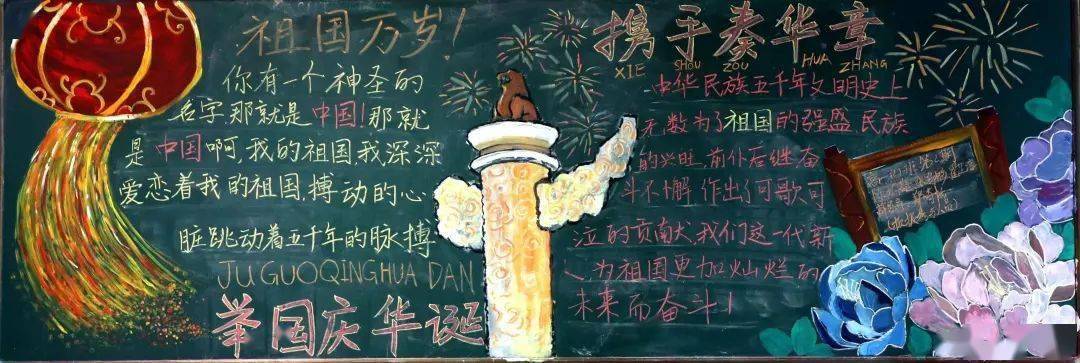 祖国万岁！
你有一个神圣的
名字那就是中国！那就
是中国啊，我的祖国我深深
爱恋着我的祖国，搏动的心
脏跳动着五千年的脉搏
JU GUOQING HUA DAN
举国庆华诞
携手奏华章
XIE SHOU ZOU HUA ZHANG
中华民族五千年文明史上
无数为了祖国的强盛民族
的兴旺前仆后继奋
斗不懈作出了可歌可
泣的贡献，我们这一代新
人为祖国更加灿烂的
未来而奋斗！